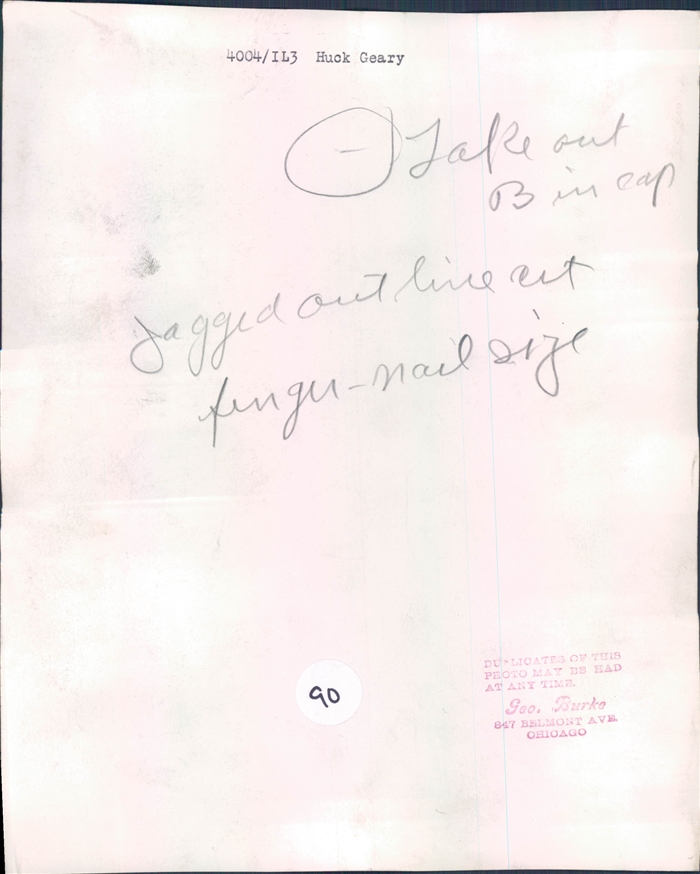 4004/IL3 Huck Geary
Take out
B in cap
Jagged outline cut
finger-nail size
90
DUPLICATES OF THIS
PHOTO MAY BE HAD
AT ANY TIME.
Geo. Burke
847 BELMONT AVE.
CHICAGO